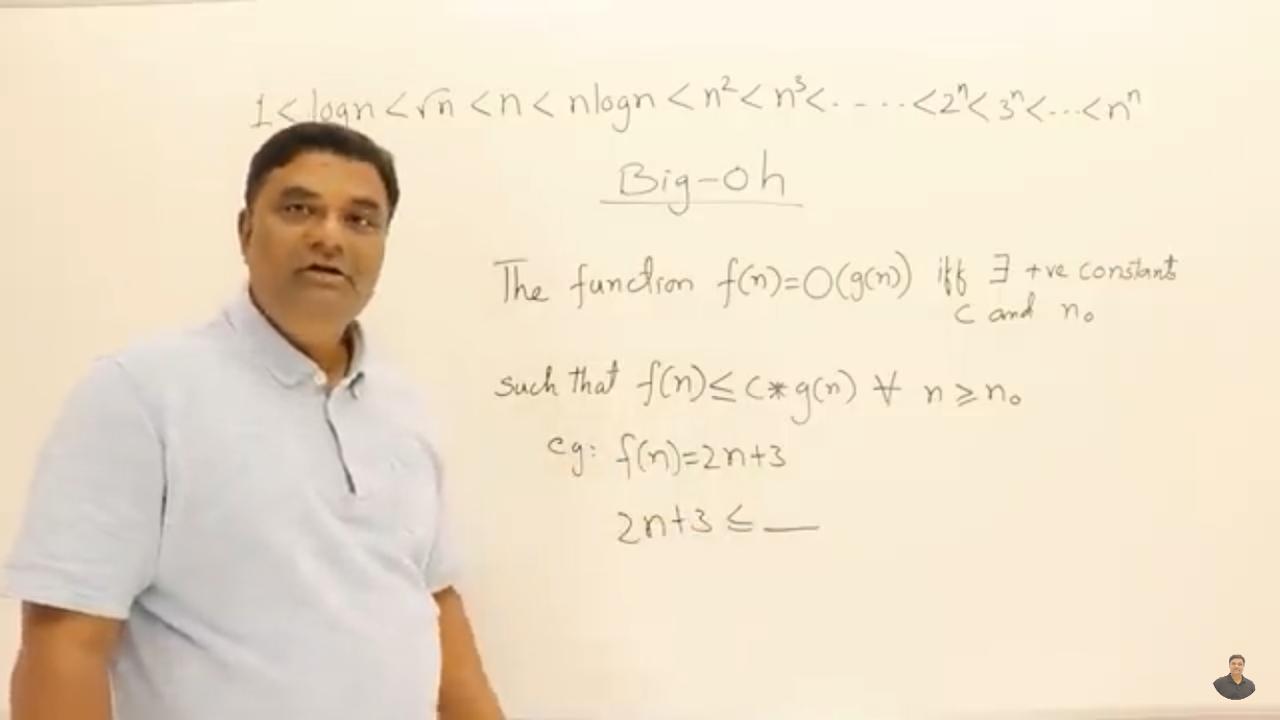 1 < logn < √n < n < nlogn < n² < n³ < - - - - - < 2ⁿ < 3ⁿ < ... < nⁿ
Big-Oh
The function f(n)=O(g(n)) iff ∃ +ve constants
c and n₀
such that f(n) ≤ c*g(n) ∀ n ≥ n₀
eg: f(n)=2n+3
2n+3 ≤ __